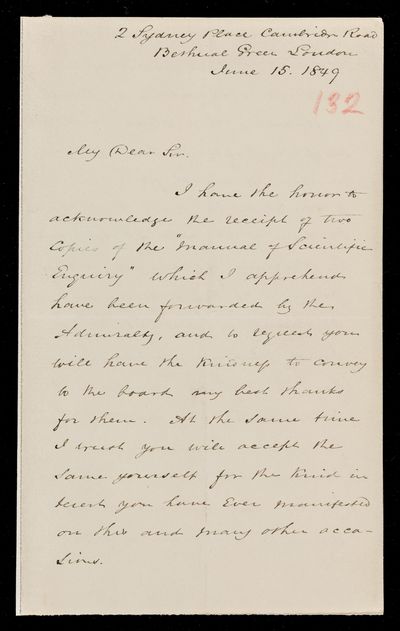 2 Sydney Place Cambridge Road
Bethnal Green London
June 15. 1849
132
My Dear Sir.
I have the honor to
acknowledge the receipt of two
Copies of the "Manual of Scientific
Enquiry" which I apprehend
have been forwarded by the
Admiralty, and to request you
will have the kindness to convey
to the board my best thanks
for them. At the same time
I trust you will accept the
same yourself for the kind in
terest you have ever manifested
on this and many other occa-
sions.